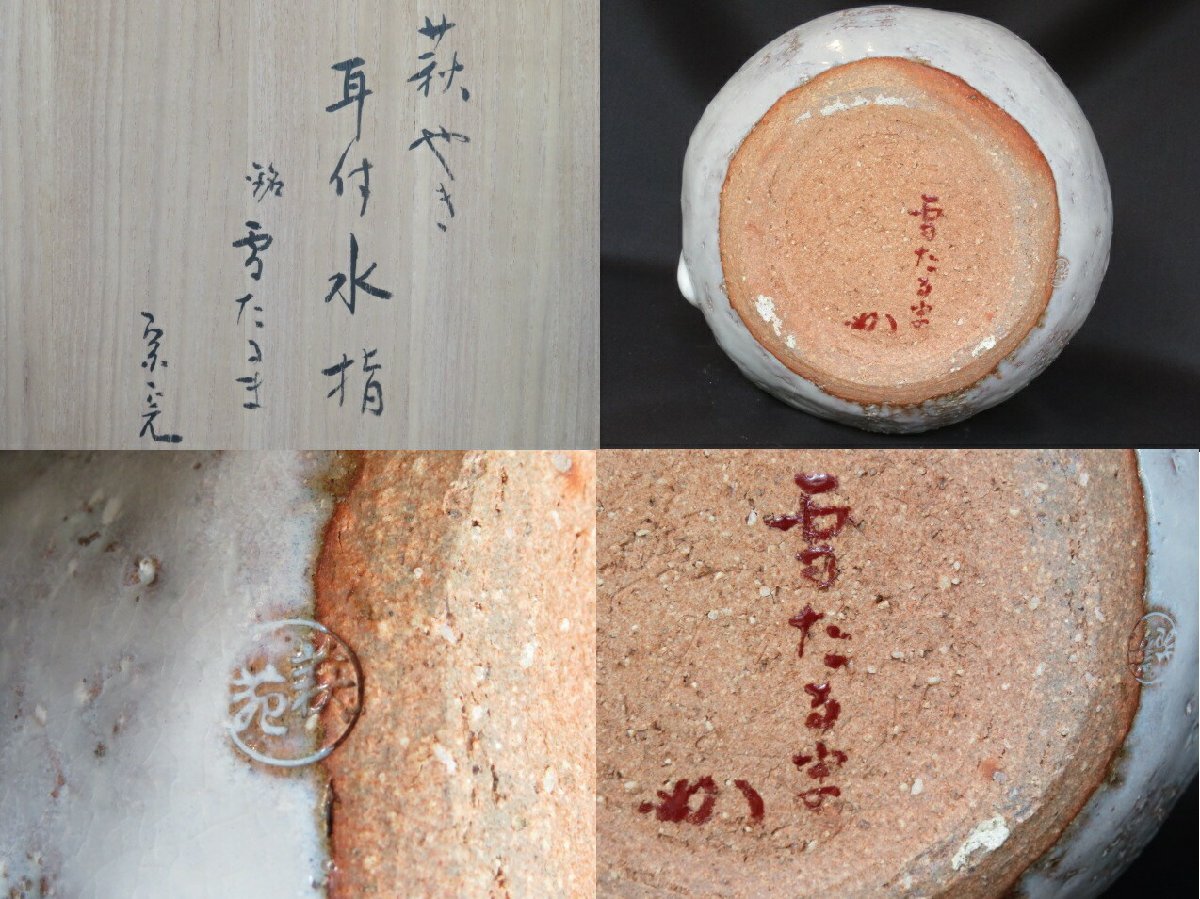 萩やき
耳付水指
銘
雪たるま
雪たるま
萩苑
雪たるま